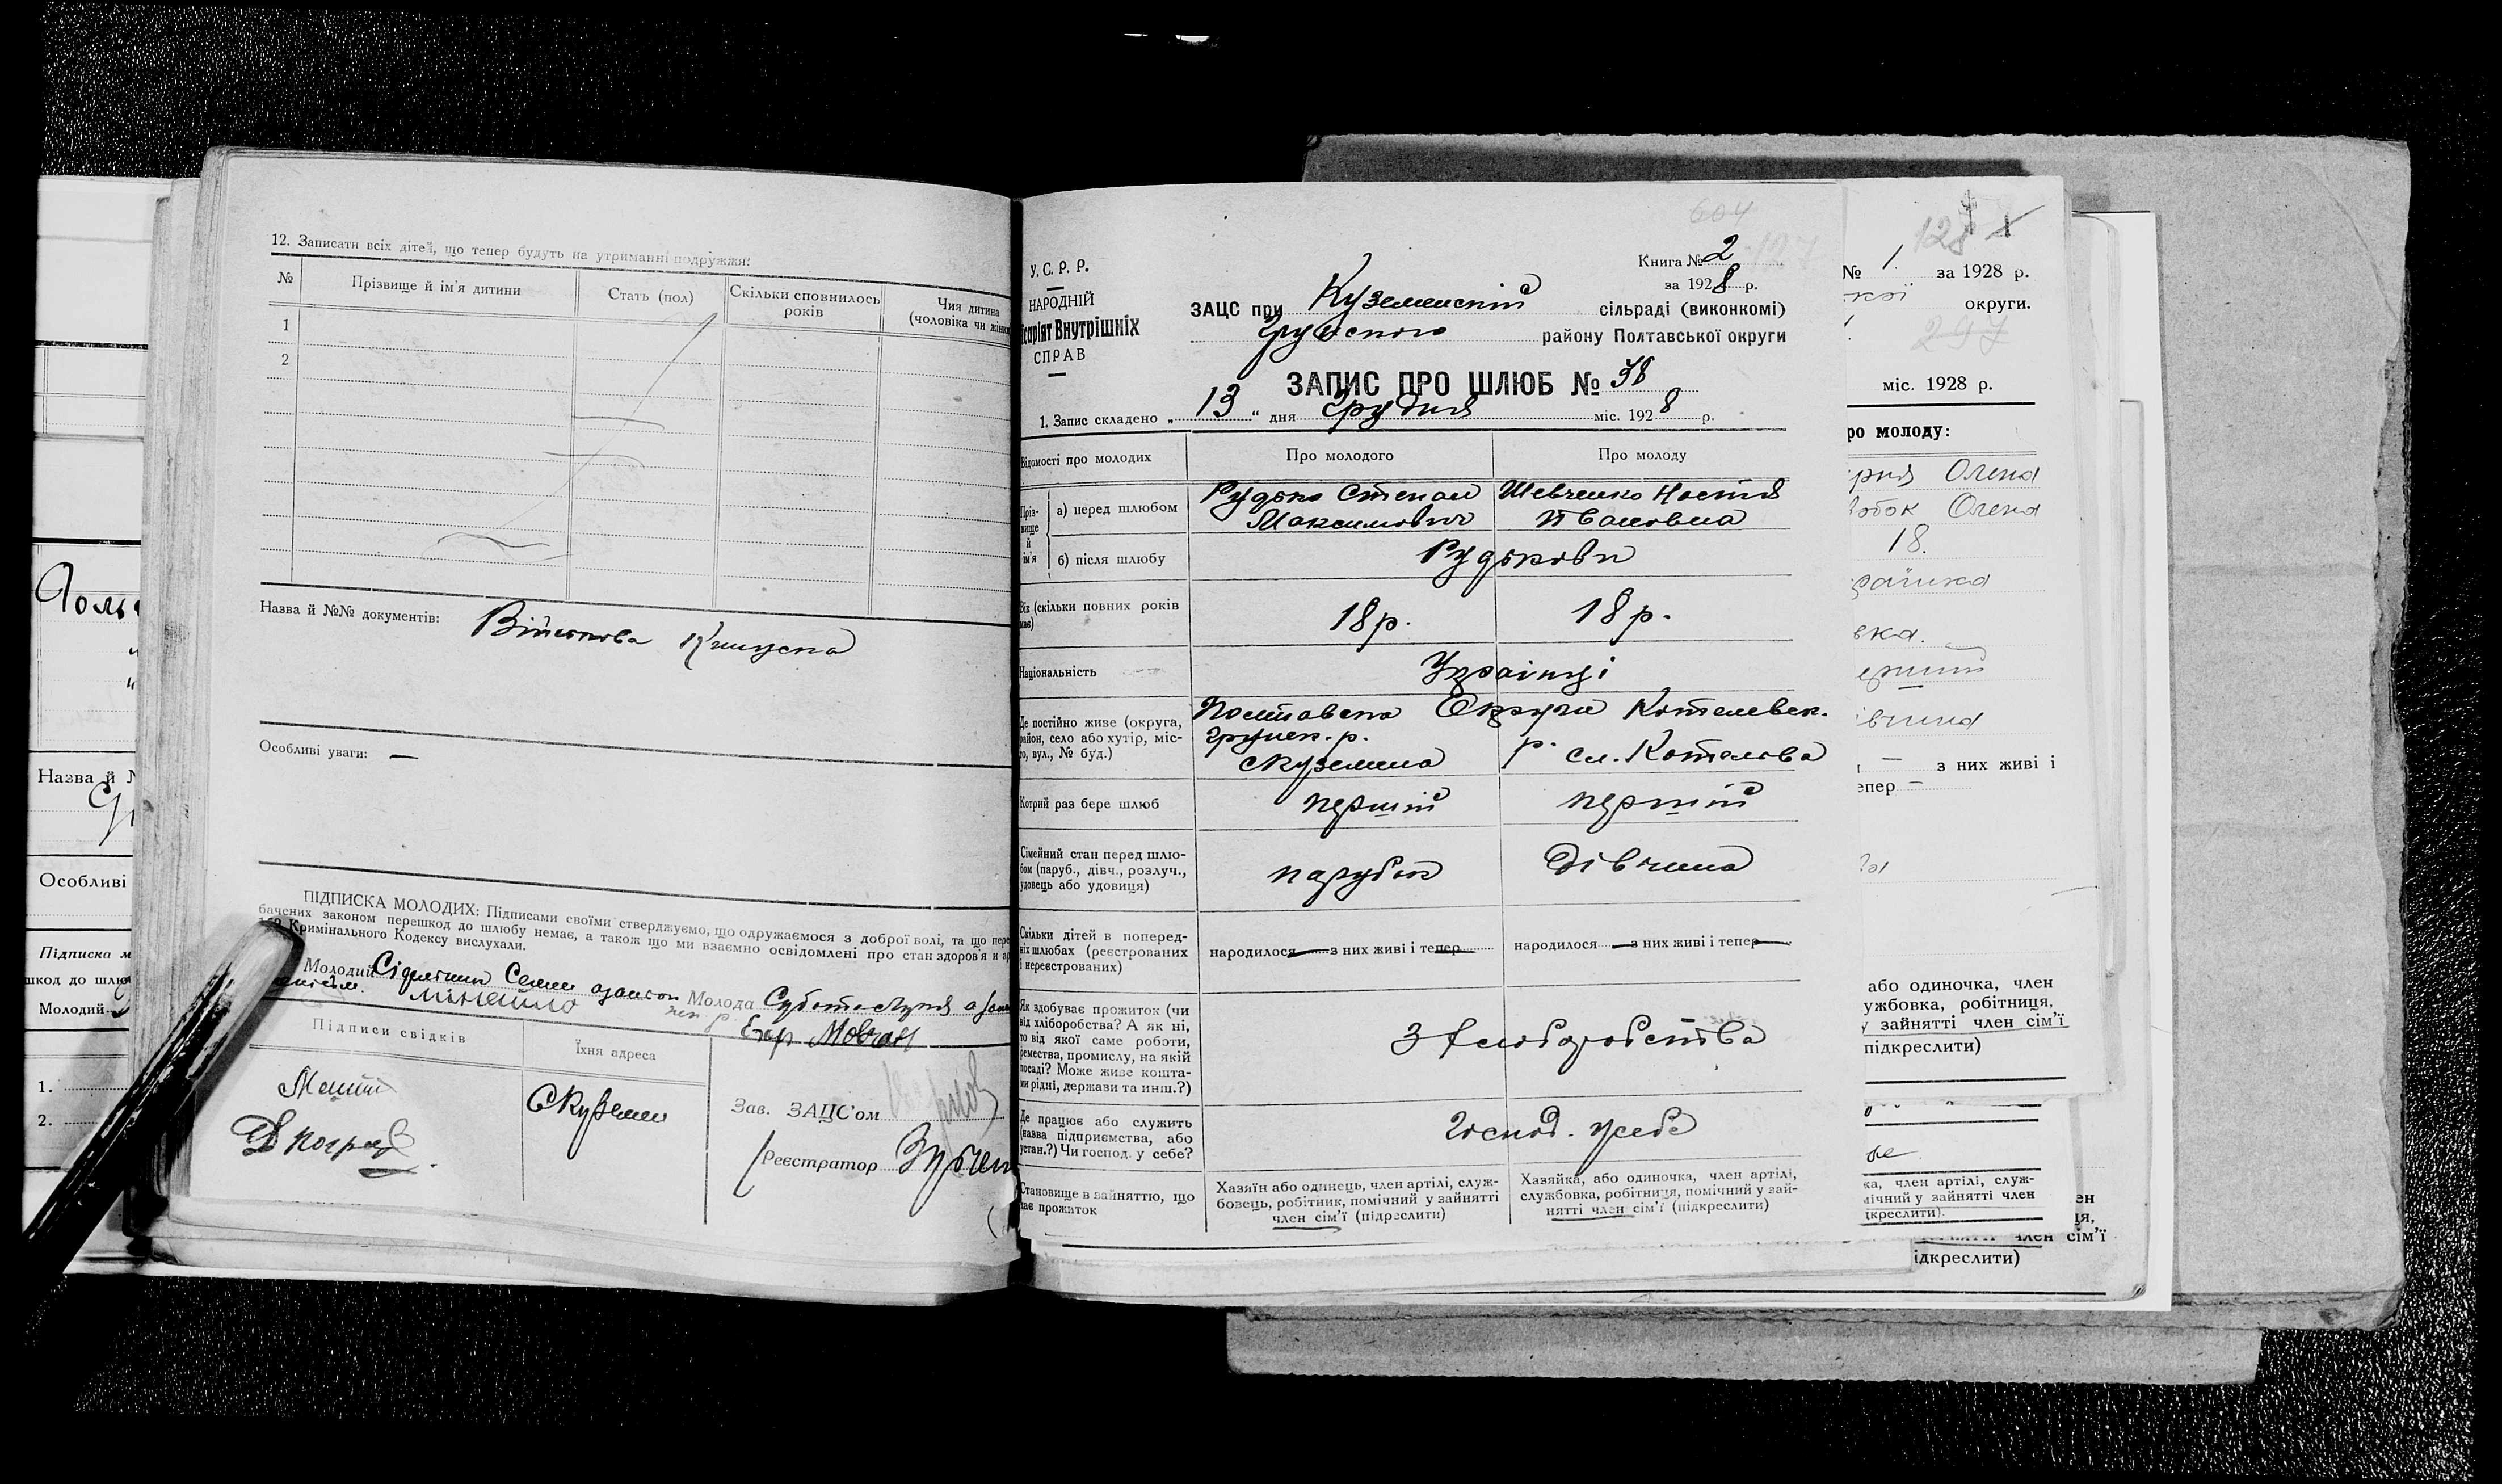 12. Записати всіх дітей, що тепер будуть на утриманні подружжя:
№ Прізвище й ім'я дитини Стать (пол) Скільки сповнилось років Чия дитина (чоловіка чи жінки
1
2
Назва й №№ документів: Військова Книжка
Особливі уваги: —
ПІДПИСКА МОЛОДИХ: Підписами своїми стверджуємо, що одружаємося з доброї волі, та що пере
бачених законом перешкод до шлюбу немає, а також що ми взаємно освідомлені про стан здоров'я и
Кримінального Кодексу вислухали.
Молодий Семен Молода
Підписи свідків Їхня адреса
Егор Мовчан
1.
2.
Зав. ЗАЦС'ом
Реєстратор
Назва й №
Особливі
Підписка м
шкод до шлю
Молодий
У. С. Р. Р.
НАРОДНІЙ
існріят Внутрішніх
СПРАВ
604
Книга № 2
за 1928 р.
ЗАЦС при Куземинскій сільраді (виконкомі)
Грунського району Полтавської округи
ЗАПИС ПРО ШЛЮБ № 38
1. Запис складено „13" дня Грудня міс. 1928 р.
Відомості про молодих Про молодого Про молоду
Прізвище й ім'я
а) перед шлюбом Рудоко Степан Максимович Шевченко Настя Ивановна
б) після шлюбу Рудокови
Вік (скільки повних років має) 18 р. 18 р.
Національність Українці
Де постійно живе (округа, район, село або хутір, місто, вул., № буд.) Полтавска Округи Котелевск.
Грунск. р. р. сл. Котелва
с Куземина
Котрий раз бере шлюб першій першій
Сімейний стан перед шлюбом (паруб., дівч., розлуч., удовець або удовиця) парубок Дівчина
Скільки дітей в попередніх шлюбах (реєстрованих і нереєстрованих) народилося — з них живі і тепер — народилося — з них живі і тепер —
Як здобуває прожиток (чи від хліборобства? А як ні, то від якої саме роботи, ремества, промислу, на якій посаді? Може живе коштами рідні, держави та инш.?) З хліборобства
Де працює або служить (назва підприємства, або устан.?) Чи господ. у себе? Господ. усебе
Становище в зайняттю, що дає прожиток
Хазяїн або одинець, член артілі, службовець, робітник, помічний у зайнятті член сім'ї (підреслити)
Хазяйка, або одиночка, член артілі, службовка, робітниця, помічний у зайнятті член сім'ї (підкреслити)
128
№ 1. за 1928 р.
округи.
297
міс. 1928 р.
ро молоду:
Олена
Олена
18.
вка.
з них живі і
епер —
або одиночка, член
ужбовка, робітниця,
у зайнятті член сім'ї
підкреслити)
ка, член артілі, служ-
мічний у зайнятті член
ікреслити).
член сім'ї
ідкреслити)